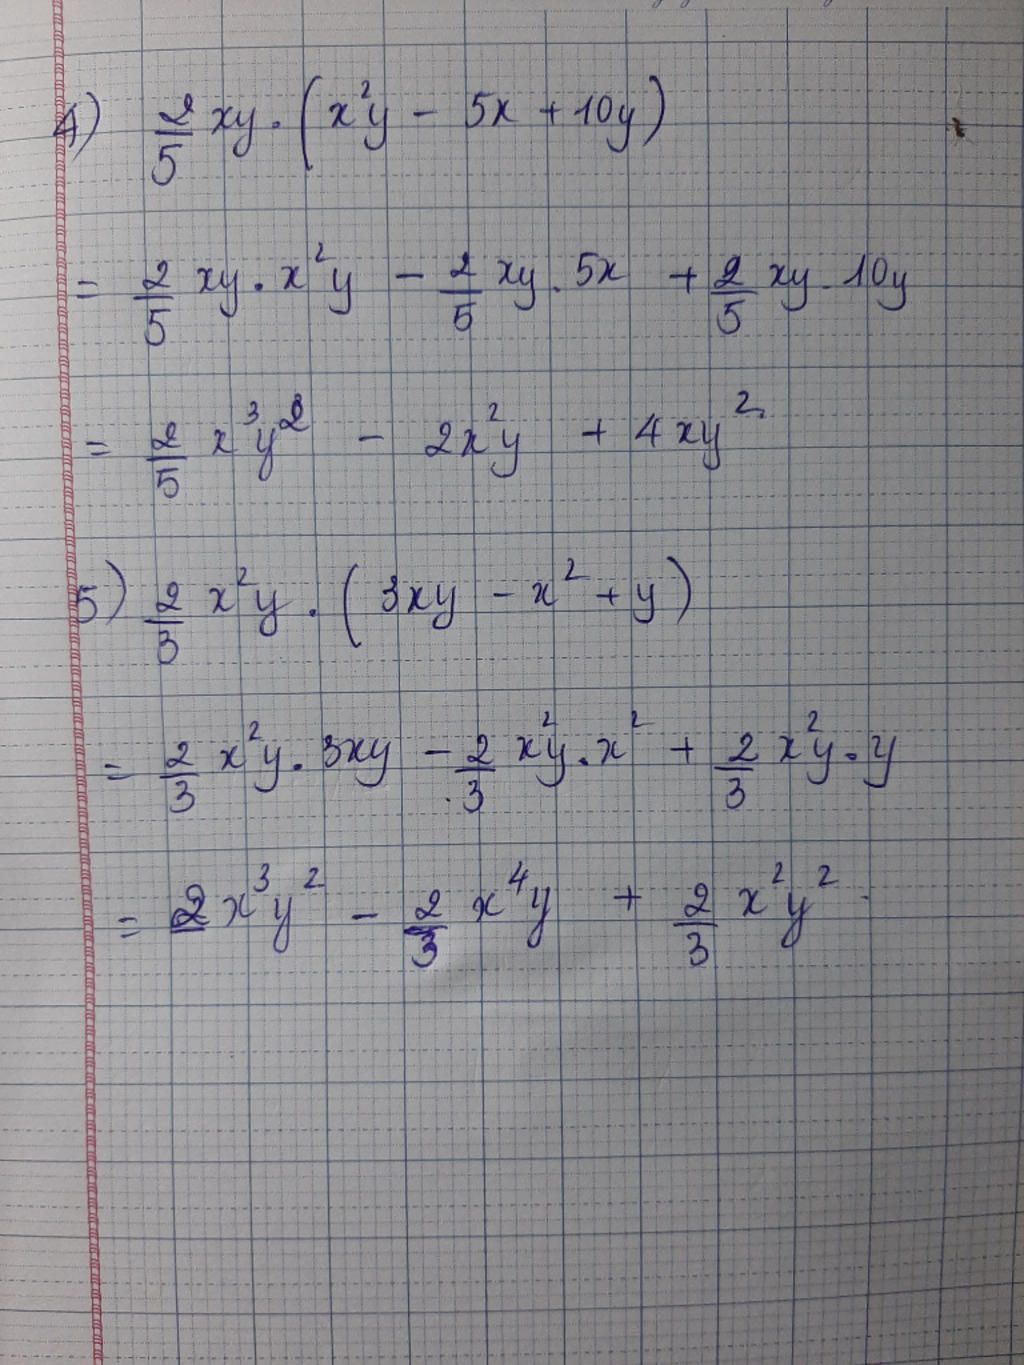 4) 2/5 xy . (x²y - 5x + 10y)
= 2/5 xy . x²y - 2/5 xy . 5x + 2/5 xy . 10y
= 2/5 x³y² - 2x²y + 4xy²
5) 2/3 x²y . (3xy - x² + y)
= 2/3 x²y . 3xy - 2/3 x²y . x² + 2/3 x²y . y
= 2x³y² - 2/3 x⁴y + 2/3 x²y²